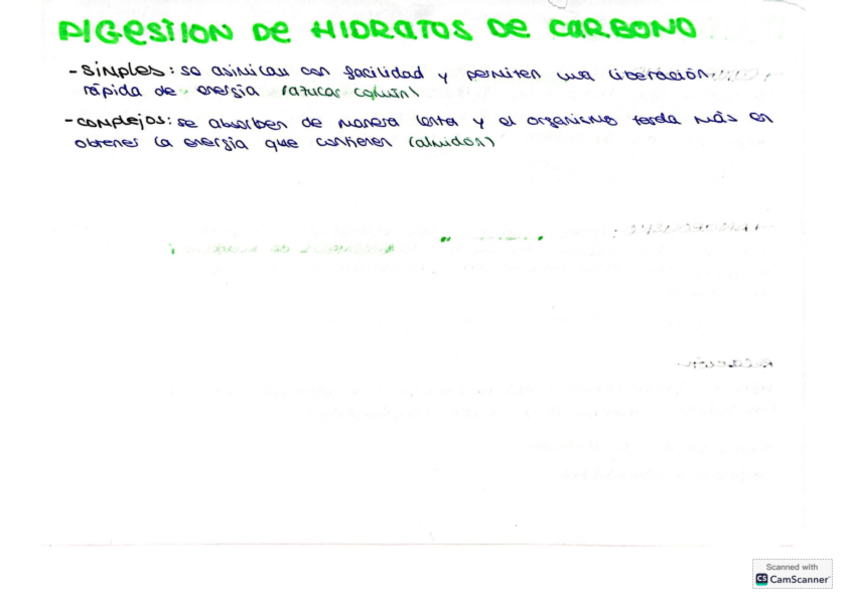 DIGESTION DE HIDRATOS DE CARBONO
- SIMPLES: se asimilan con facilidad y permiten una liberación
rápida de energía (azúcar común)
- COMPLEJOS: se absorben de manera lenta y el organismo tarda más en
obtener la energía que contienen (almidón)
Scanned with
CS CamScanner